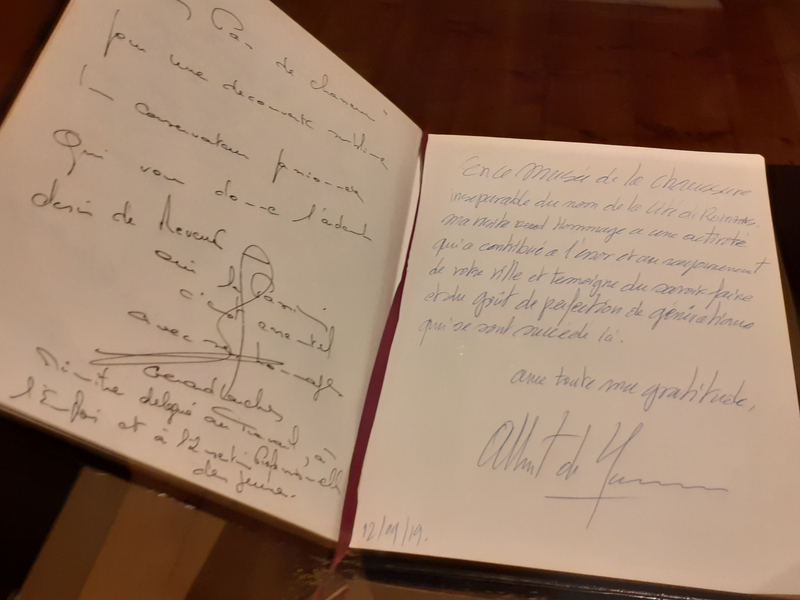 Pas de chance
pour une découverte sublime
conservateur passionné
Qui vous donne l'ardent
désir de Revenir
c'est essentiel
avec
Ministre délégué au Travail, à
l'Emploi et à l'Insertion Professionnelle
des jeunes.
En ce Musée de la Chaussure
inséparable du nom de la Cité de Romans.
ma visite rend Hommage à une activité
qui a contribué à l'essor et au rayonnement
de votre ville et témoigne du savoir faire
et du goût de perfection de générations
qui se sont succédé là.
avec toute ma gratitude,
Albert de
12/09/19.